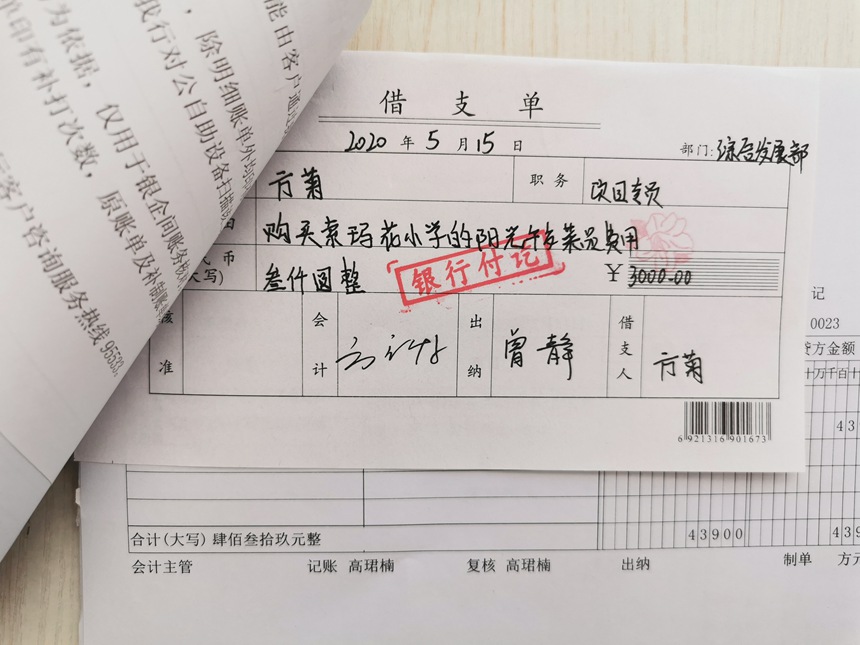 能由客户通
,除明细账单外
我行对公自助设备扫描
为依据,仅用于银企间账务
印有补打次数,原账单及补制账
客户咨询服务热线95533
借支单
2020 年 5 月 15 日
部门:综合发展部
方菊 职务 项目专员
购买索玛花小学的阳光午餐菜品费用
币
大写) 叁仟圆整 ¥ 3000.00
银行付讫
核准 会计 出纳 曾静 借支人 方菊
6 921316 901673
记
0023
贷方金额
十万千百十
43
合计(大写) 肆佰叁拾玖元整 43900 439
会计主管 记账 高珺楠 复核 高珺楠 出纳 制单 方元